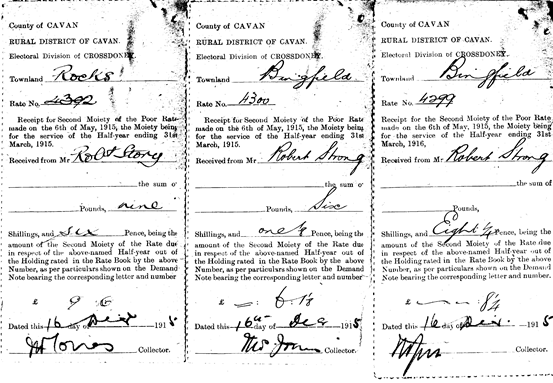 County of CAVAN
RURAL DISTRICT OF CAVAN.
Electoral Division of CROSSDONEY.
Townland Rocks
Rate No. 4392
Receipt for Second Moiety of the Poor Rate
made on the 6th of May, 1915, the Moiety being
for the service of the Half-year ending 31st
March, 1915.
Received from Mr Robt Story
the sum o
Pounds, nine
Shillings, and six Pence, being the
amount of the Second Moiety of the Rate due
in respect of the above-named Half-year out
of the Holding rated in the Rate Book by the above
Number, as per particulars shown on the Demand
Note bearing the corresponding letter and number
£ 9 6
Dated this 16 day of 1915
Collector.
County of CAVAN
RURAL DISTRICT OF CAVAN.
Electoral Division of CROSSDONEY.
Townland Bingfield
Rate No. 4300
Receipt for Second Moiety of the Poor Rate
made on the 6th of May, 1915, the Moiety being
for the service of the Half-year ending 31st
March, 1915.
Received from Mr Robert Strong
the sum o
Pounds, Six
Shillings, and one ½ Pence, being the
amount of the Second Moiety of the Rate due
in respect of the above-named Half-year out of
the Holding rated in the Rate Book by the above
Number, as per particulars shown on the Demand
Note bearing the corresponding letter and number
£ 6. 1½
Dated this 16th day of Dec 1915
Collector.
County of CAVAN
RURAL DISTRICT OF CAVAN.
Electoral Division of CROSSDONEY.
Townland Bingfield
Rate No. 4299
Receipt for Second Moiety of the Poor Rate
made on the 6th of May, 1915, the Moiety being
for the service of the Half-year ending 31st
March, 1916,
Received from Mr Robert Strong
the sum of
Pounds,
Shillings, and Eight ½ Pence, being the
amount of the Second Moiety of the Rate due
in respect of the above-named Half-year out of
the Holding rated in the Rate Book by the above
Number, as per particulars shown on the Demand
Note bearing the corresponding letter and number
£ 8½
Dated this 16 day of 1915
Collector.